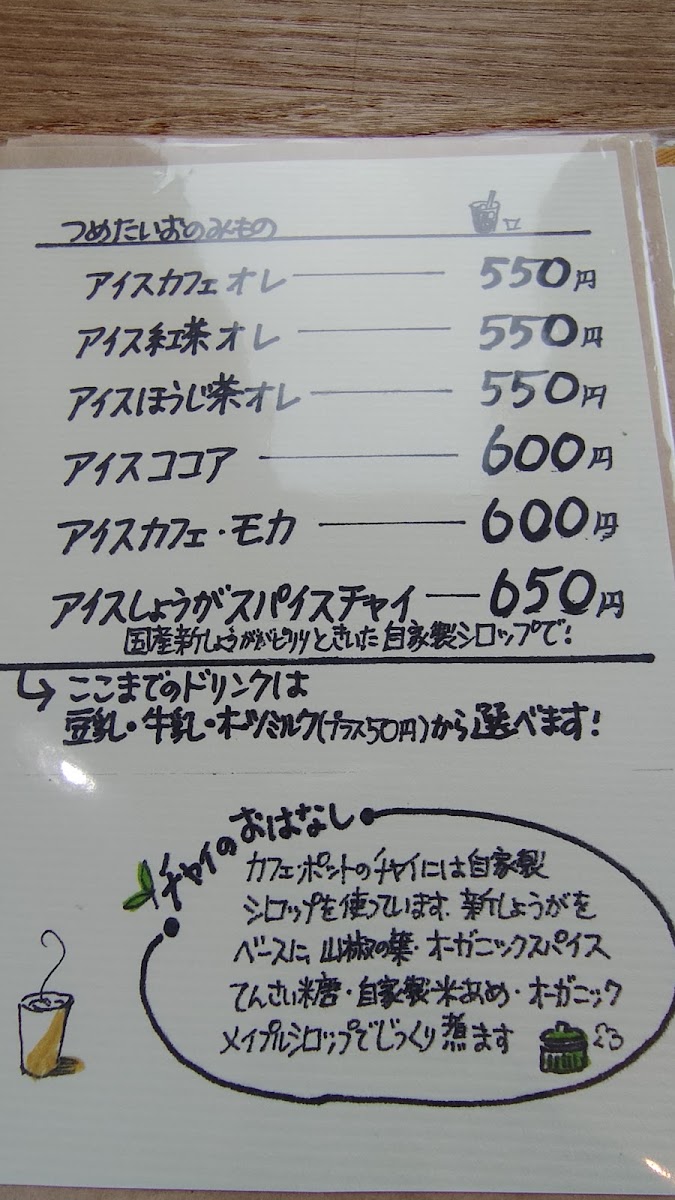 つめたいおのみもの
アイスカフェオレ 550円
アイス紅茶オレ 550円
アイスほうじ茶オレ 550円
アイスココア 600円
アイスカフェ・モカ 600円
アイスしょうがスパイスチャイ 650円
国産新しょうががピリリときいた自家製シロップで!
ここまでのドリンクは
豆乳・牛乳・オーツミルク(プラス50円)から選べます!
チャイのおはなし
カフェ・ポットのチャイには自家製
シロップを使っています。新しょうがを
ベースに、山椒の葉・オーガニックスパイス
てんさい糖・自家製米あめ・オーガニック
メイプルシロップでじっくり煮ます